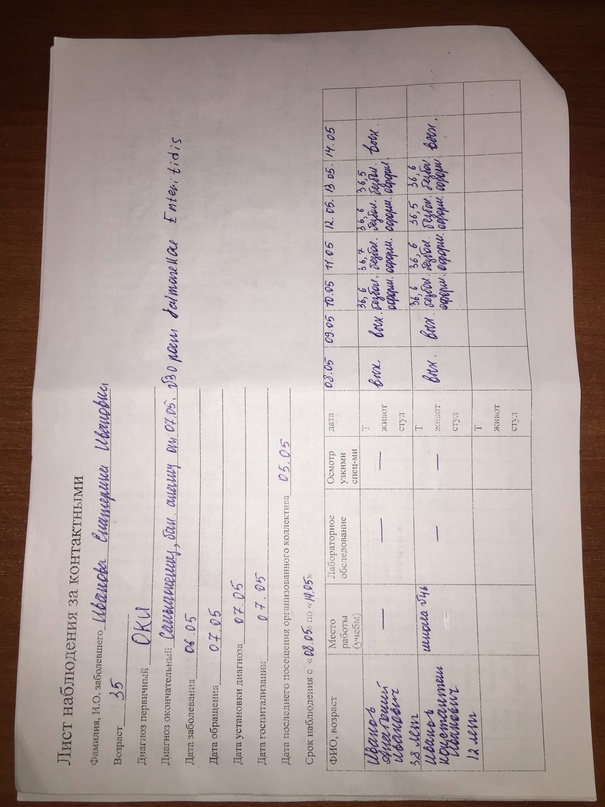 Лист наблюдения за контактными
Фамилия, И.О. заболевшего Иванова Екатерина Ивановна
Возраст 35
Диагноз первичный ОКИ
Диагноз окончательный Сальмонеллез, бак анализ от 07.05. рост Salmonellae Enteritidis
Дата заболевания 06.05
Дата обращения 07.05
Дата установки диагноза 07.05
Дата госпитализации 07.05
Дата последнего посещения организованного коллектива 05.05
Срок наблюдения с «08.05» по «14.05»
ФИО, возраст Место работы (учебы) Лабораторное обследование Осмотр узкими спец-ми дата 08.05 09.05 10.05 11.05 12.05. 13 05. 14.05
Иванов Анатолий Иванович 38 лет — — — Т живот стул
вых. вых. 36,6 безбол. оформ. 36,7 безбол. оформ. 36,6 безбол. оформ. 36,5 безбол. оформ. вых.
Иванов Константин Иванович 12 лет школа №46 — — Т живот стул
вых. вых. 36,6 безбол. оформ. 36,6 безбол. оформ. 36,5 безбол. оформ. 36,6 безбол оформ вых.
Т живот стул